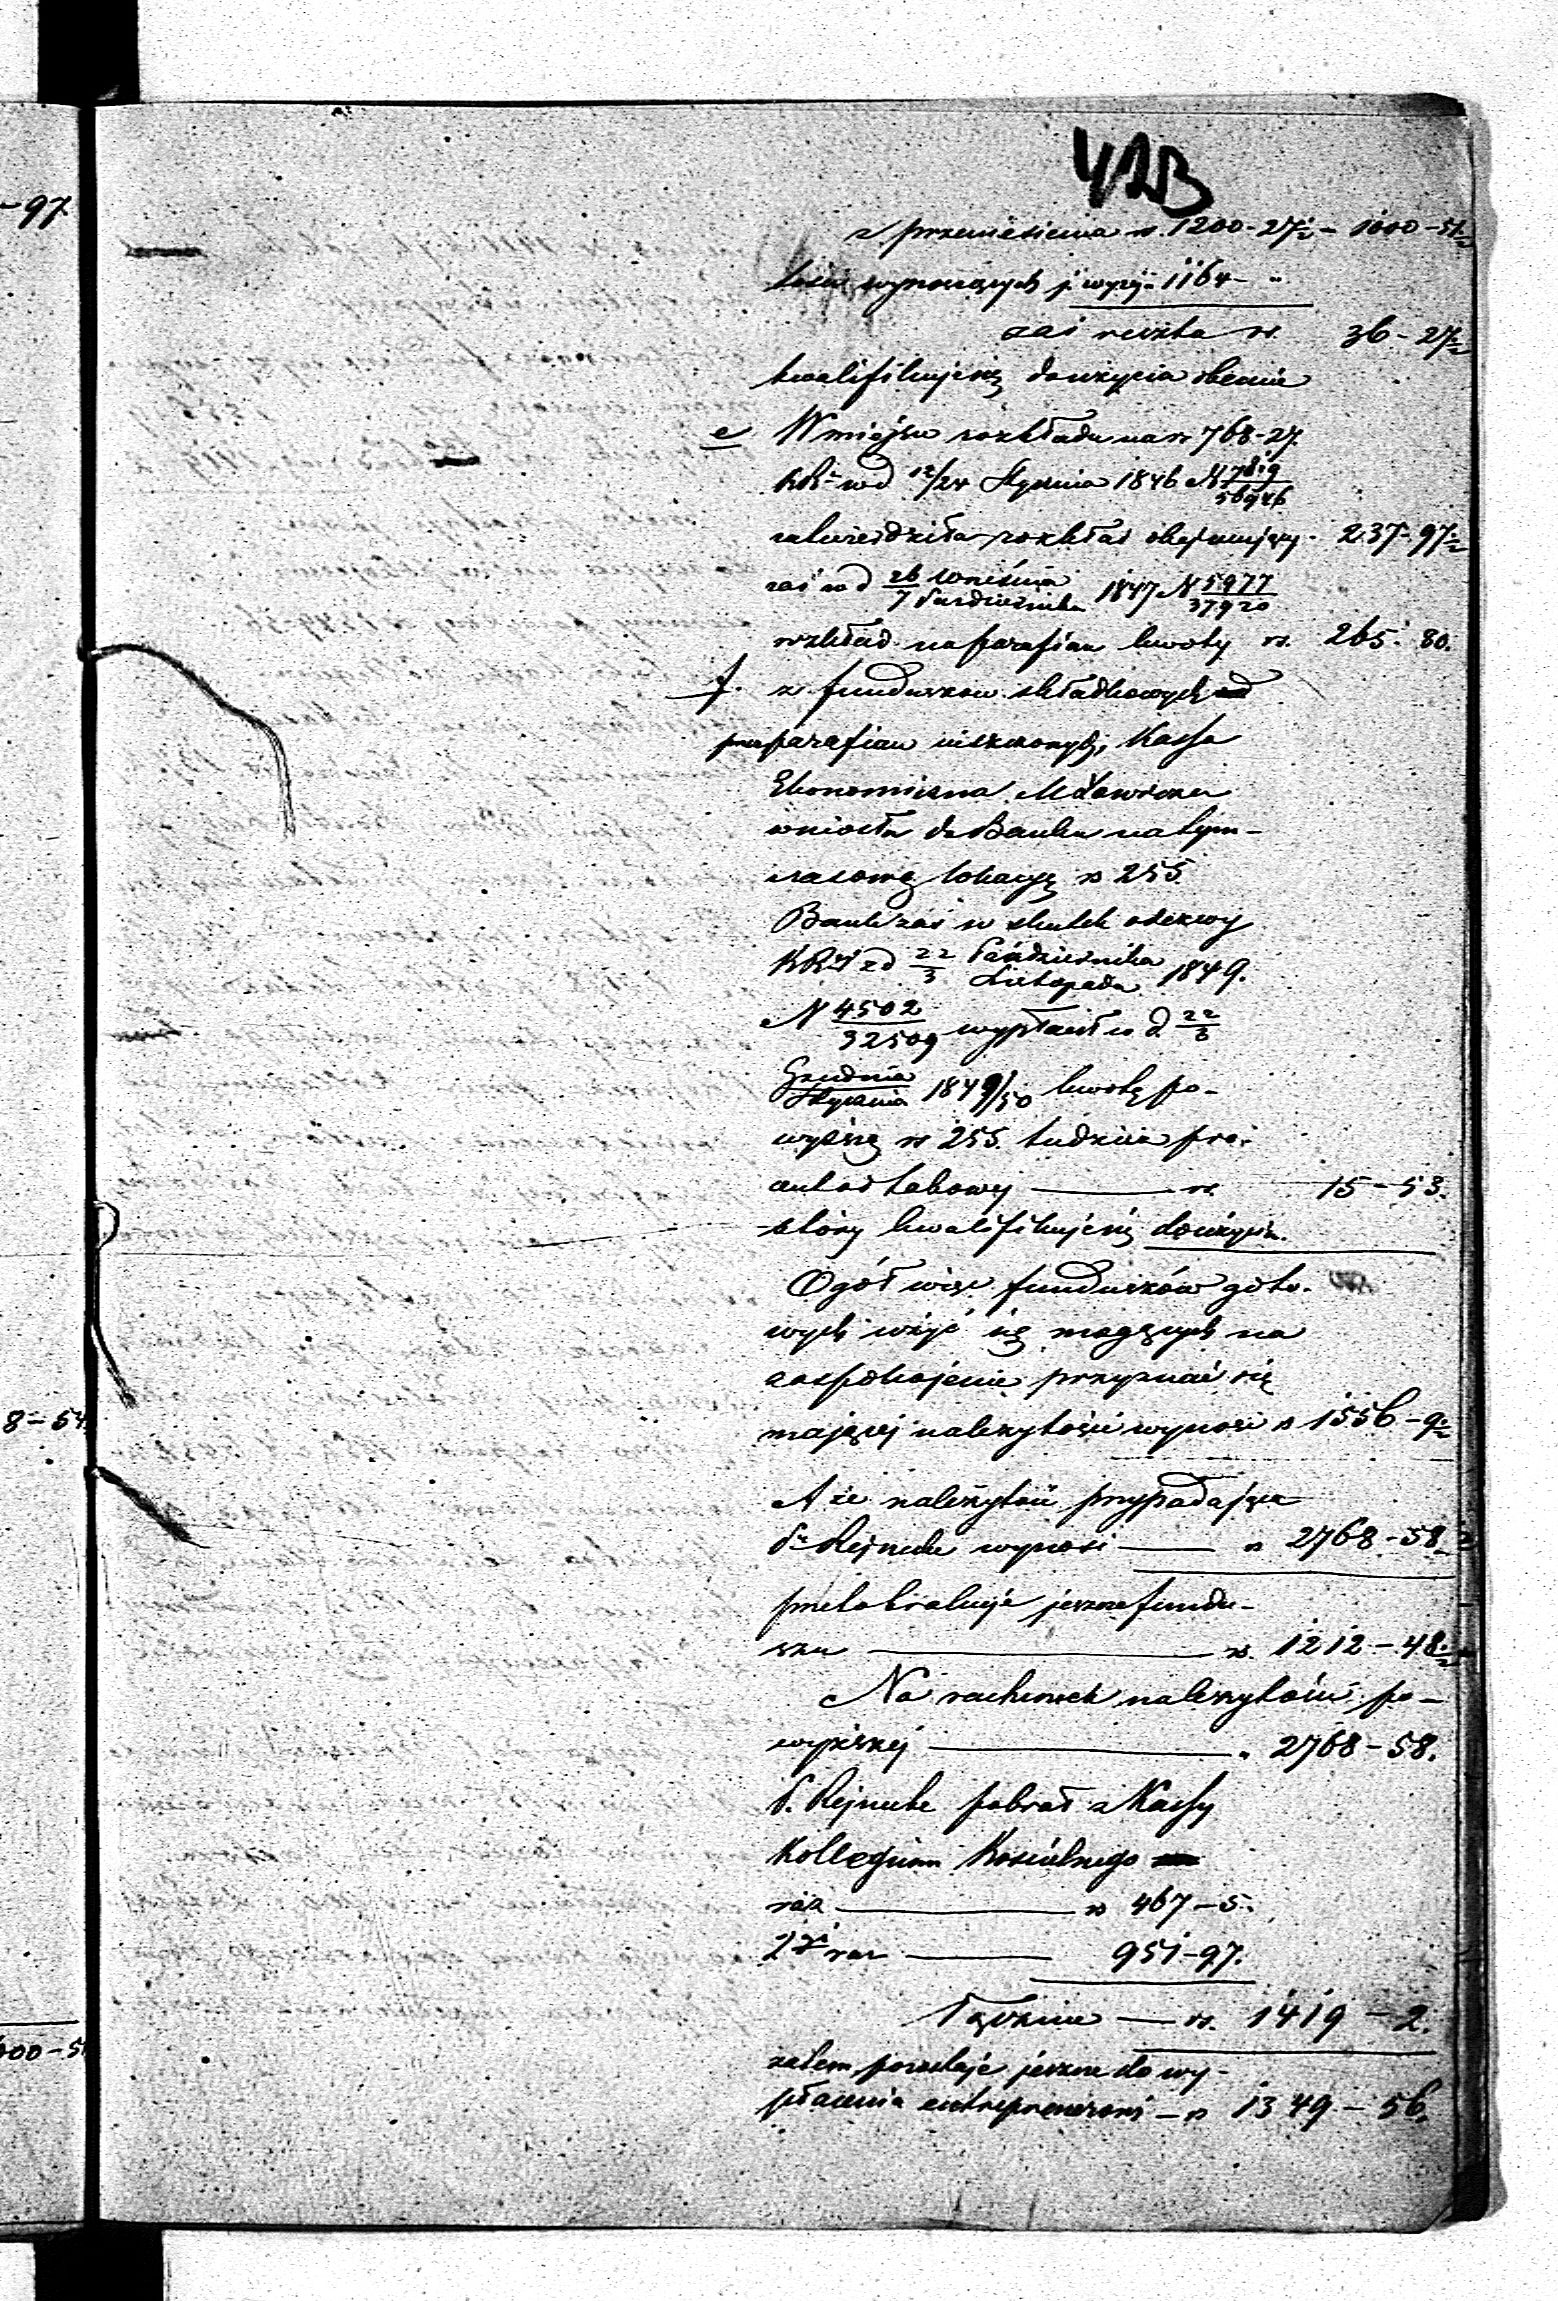 42B
z przeniesienia rs. 1200-27½ - 1000-51½
wynoszących j. wyżej 1164 - "
zaś reszta rs. 36-27½
kwalifikuje się do użycia obecnie
e W miejsce rozkładu na rs 768-27
KRS w d 12/24 Stycznia 1846 N 7819/56946
zatwierdziła rozkład obejmujący - 237-97½
zaś w d 26 Września/7 Października 1847 N 5977/37920
rozkład na parafian kwoty rs. 265. 80.
f. z funduszów składkowych
przez parafian uiszczonych, Kassa
Ekonomiczna M Ławicza
wniosła do Banku na tym-
czasową lokacyę rs 255
Bank zaś w skutek odezwy
KRS z d 22 Października/3 Listopada 1849.
N 4502/32509 wypłacił w d. 22/3
Grudnia/Stycznia 1849/50 kwotę po-
wyższą rs 255. tudzież pro-
cent od takowej — rs. 15-53.
który kwalifikuje się do użycia.
Ogół więc funduszów goto-
wych użyć się mogących na
zaspokojenie przyznać się
mającej należytości wynosi rs 1556-9½
A że należytość przypadająca
P. Rejneke wynosi — rs 2768-58.
potrzeba jeszcze fundu-
szu — rs. 1212-48½
Na rachunek należytości po-
wyższej — " 2768-58.
P. Rejneke pobrał z Kassy
Kollegium Kościelnego
raz — rs 467-5.
2gi raz — 951-97.
Łącznie — rs. 1419-2.
zatem pozostaje jeszcze do wy-
płacenia entreprenerowi — rs 1349-56.
-97
8-54
000-51